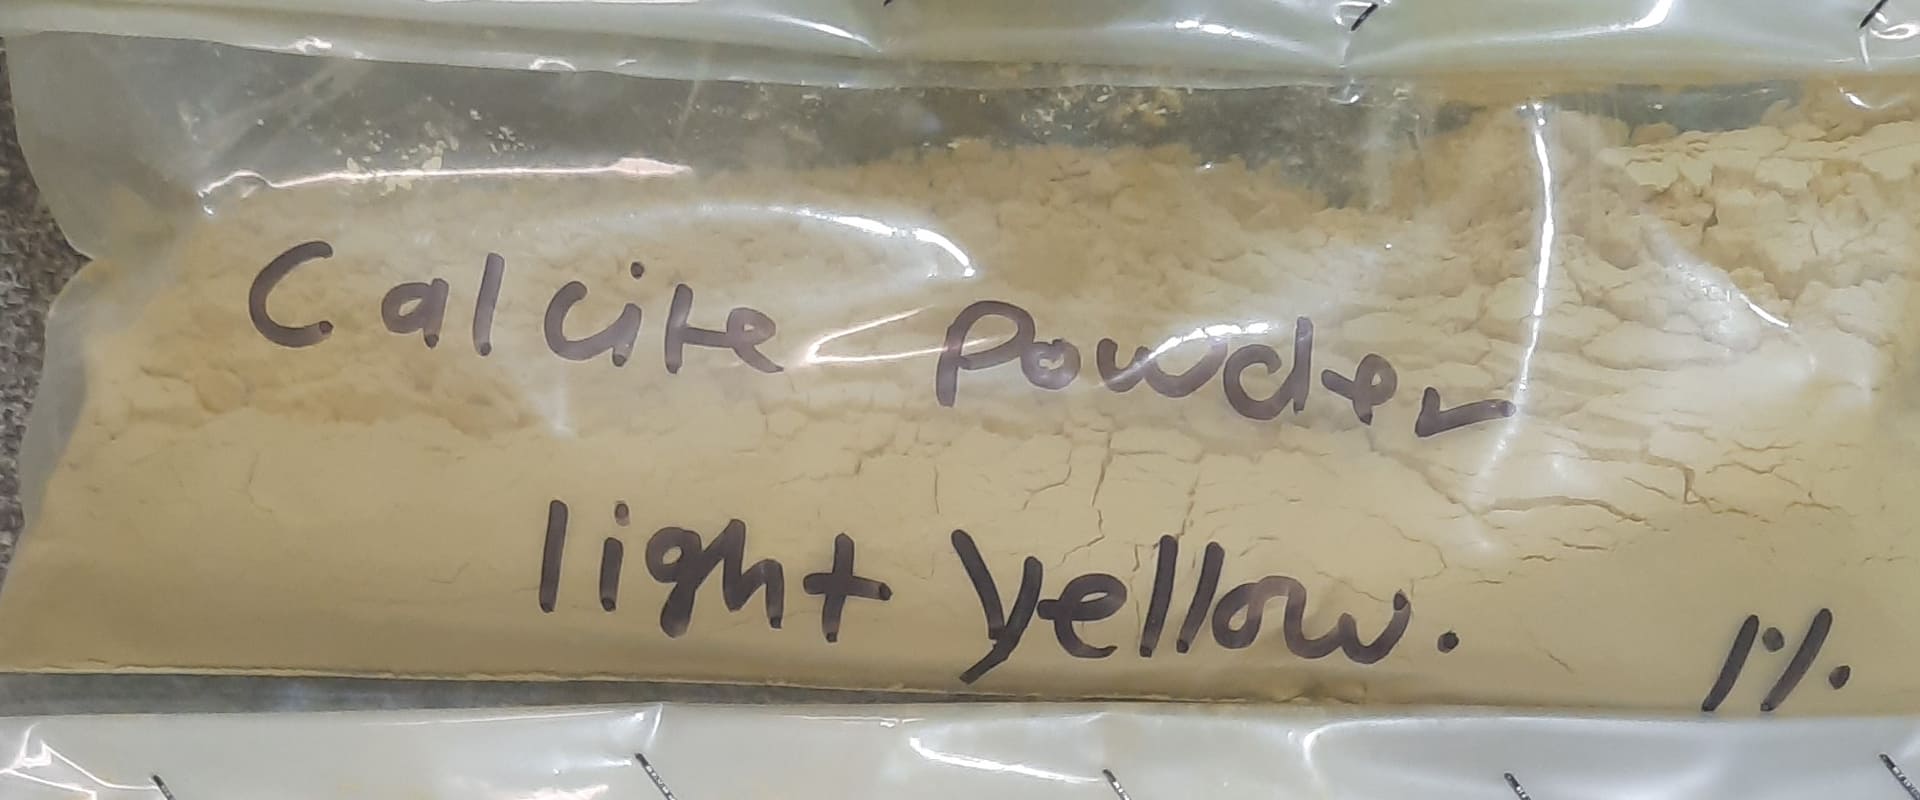 Calcite Powder
light yellow. 1%